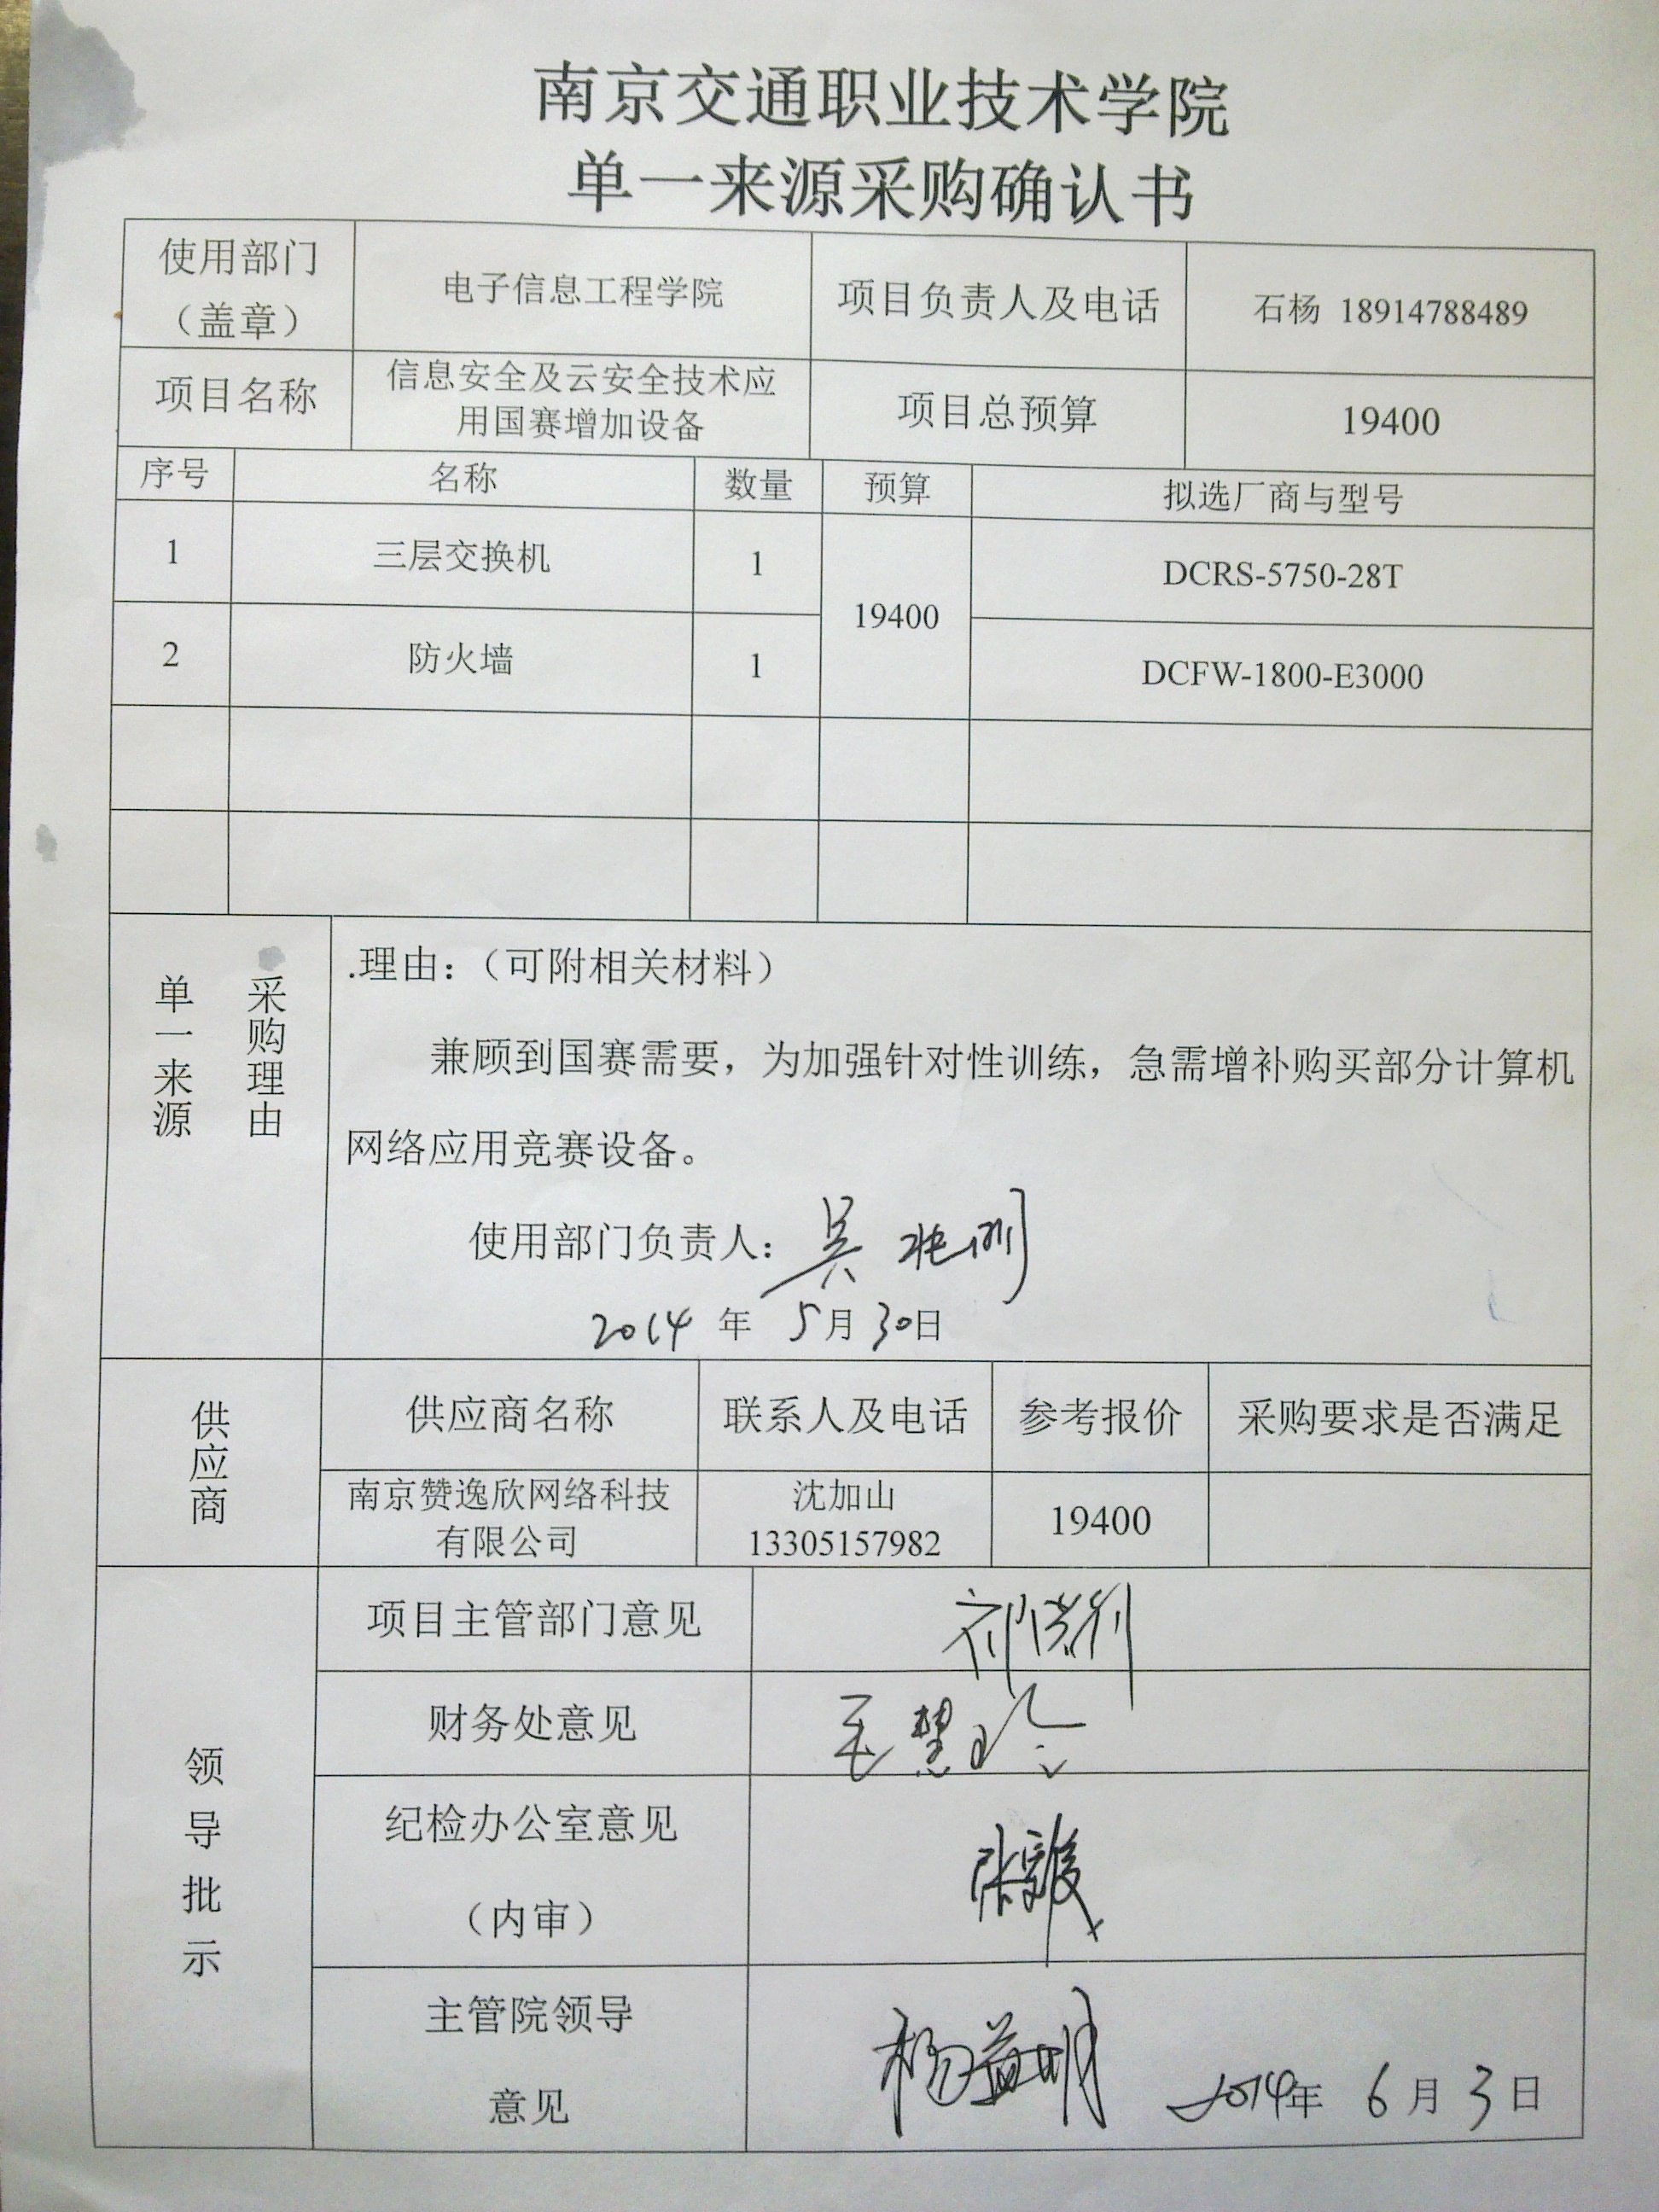 南京交通职业技术学院
单一来源采购确认书
使用部门
（盖章）
电子信息工程学院
项目负责人及电话
石杨 18914788489
项目名称
信息安全及云安全技术应
用国赛增加设备
项目总预算
19400
序号 名称 数量 预算 拟选厂商与型号
1 三层交换机 1 19400 DCRS-5750-28T
2 防火墙 1 DCFW-1800-E3000
单一来源
采购理由
.理由：（可附相关材料）
兼顾到国赛需要，为加强针对性训练，急需增补购买部分计算机
网络应用竞赛设备。
使用部门负责人：吴兆州
2014 年 5月30日
供应商
供应商名称 联系人及电话 参考报价 采购要求是否满足
南京赞逸欣网络科技
有限公司
沈加山
13305157982
19400
领导批示
项目主管部门意见
财务处意见
毛慧玲
纪检办公室意见
（内审）
主管院领导
意见
杨益明 2014年 6月3日